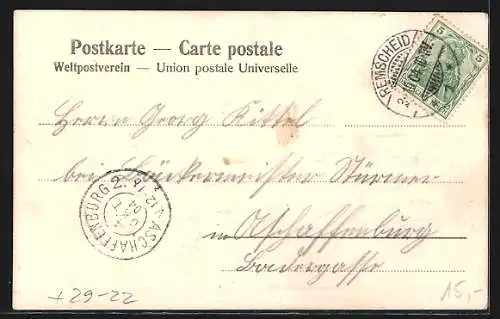 Postkarte — Carte postale
Weltpostverein — Union postale Universelle
REMSCHEID
5 5
Herrn Georg Kittel
bei Bäckermeister Stürmer
in Aschaffenburg
Badergasse
ASCHAFFENBURG 2.
+29-22
15,-